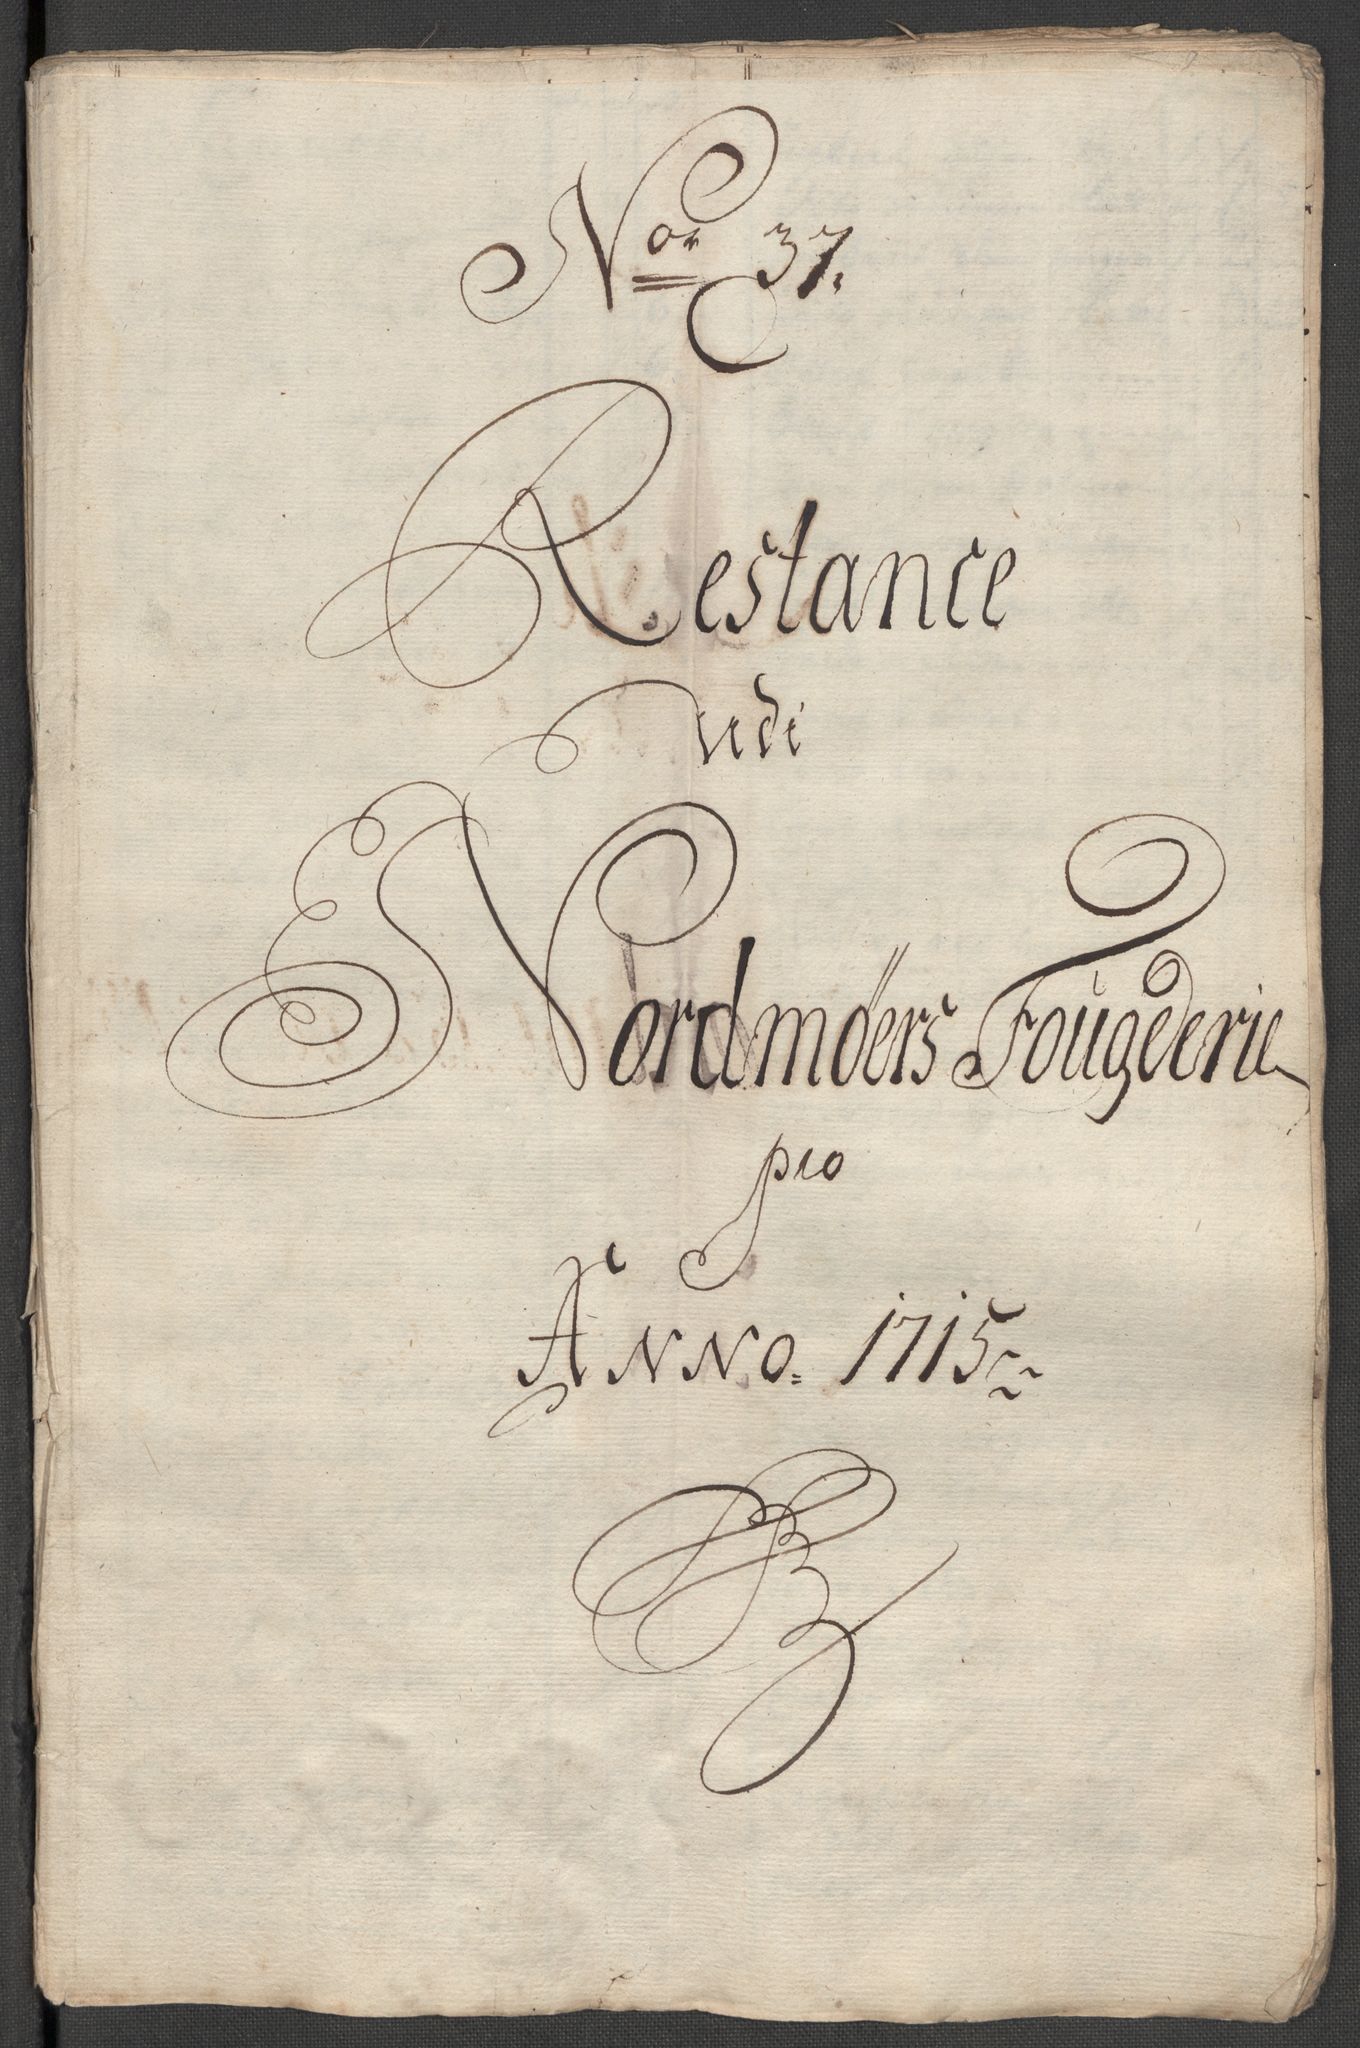 Nor 37.
Restance
udi
Nordmöers Fougderie
pro
Anno. 1715